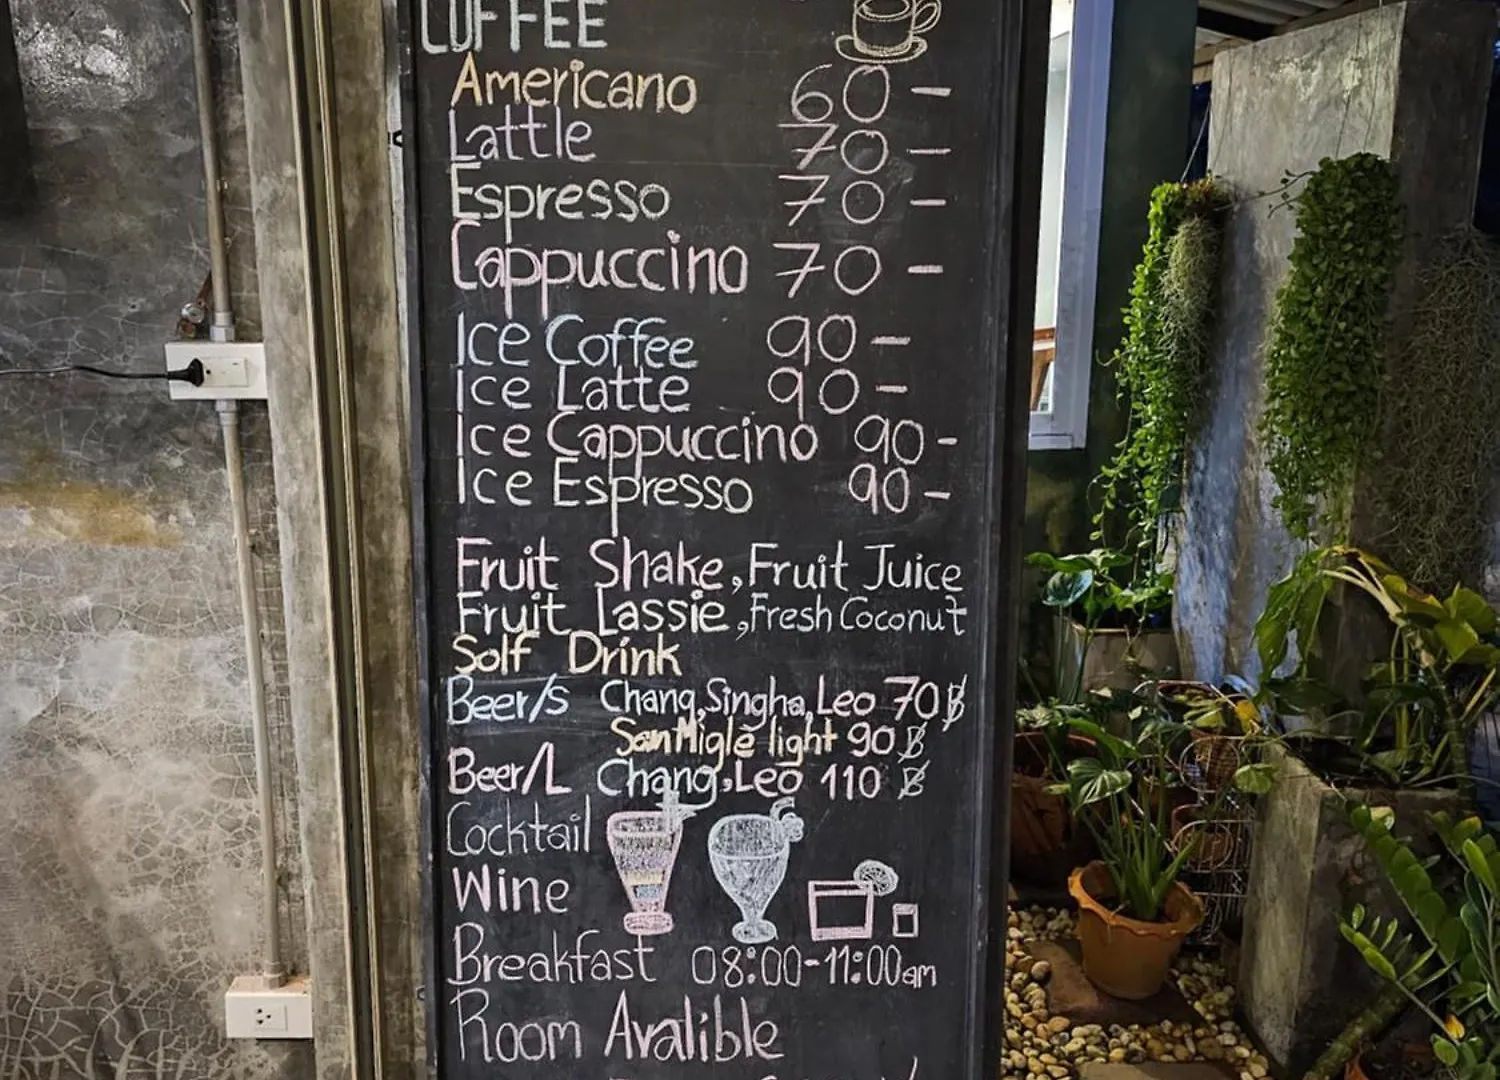 COFFEE
Americano 60 -
Lattle 70 -
Espresso 70 -
Cappuccino 70 -
Ice Coffee 90 -
Ice Latte 90 -
Ice Cappuccino 90 -
Ice Espresso 90 -
Fruit Shake, Fruit Juice
Fruit Lassie, Fresh Coconut
Solf Drink
Beer/s Chang, Singha, Leo 70 ฿
San Miglè light 90 ฿
Beer/L Chang, Leo 110 ฿
Cocktail
Wine
Breakfast 08:00-11:00am
Room Avalible